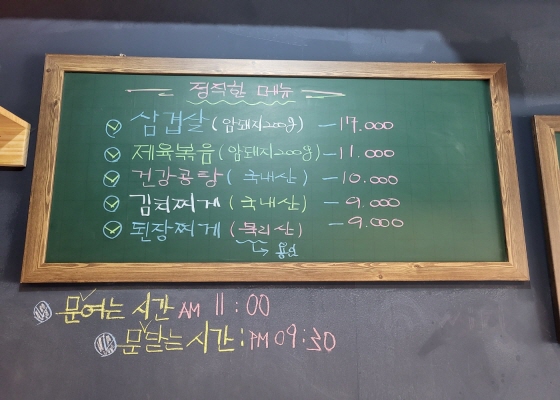 정직한 메뉴
삼겹살 (암돼지200g) - 17.000
제육볶음 (암돼지200g) - 11.000
건강곰탕 (국내산) - 10.000
김치찌게 (국내산) - 9.000
된장찌게 (묵리산) - 9.000
용인
문여는 시간 AM 11:00
문닫는 시간: PM 09:30